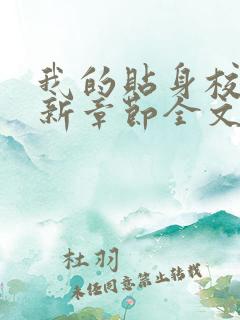 我的贴身校
新章节全文
杜羽
未经同意禁止转载